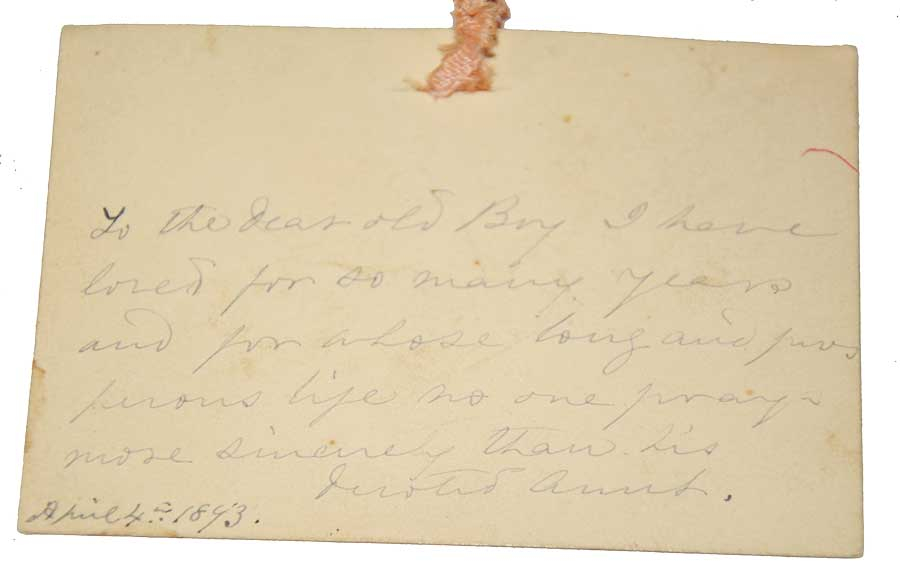 To the dear old Boy I have
loved for so many years
and for whose long and pros
perous life no one prays
more sincerely than his
devoted Aunt.
April 4th 1893.